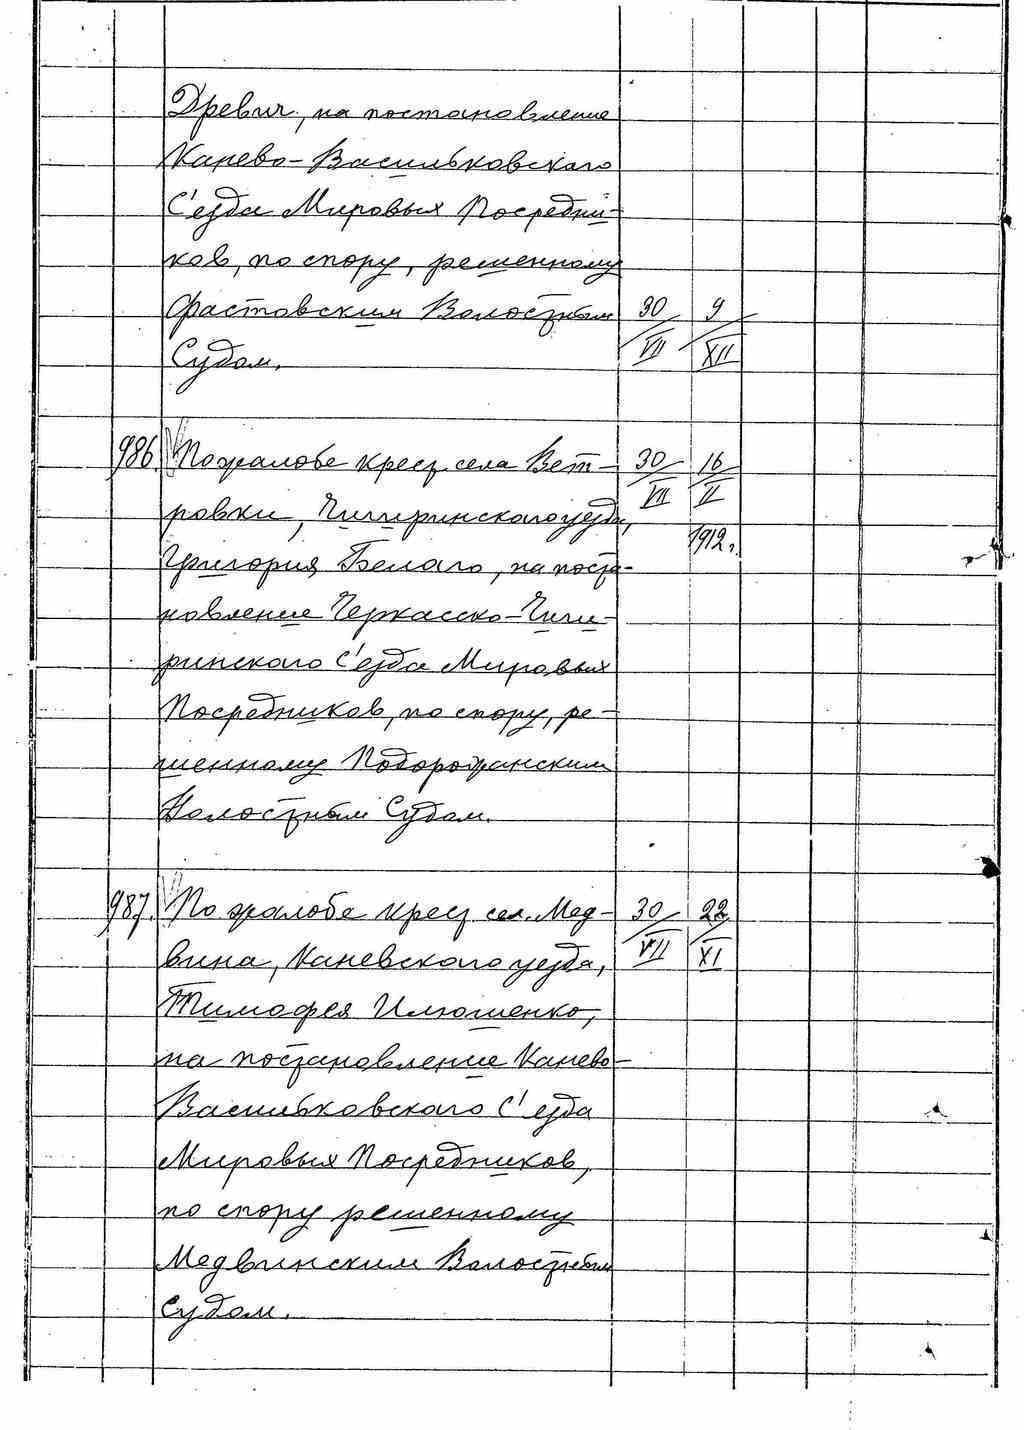 Древич, на постановление
Канево-Васильковского
С'езда Мировых Посредни-
ков, по спору, решенному
Фастовским Волостным 30/VII 9/XII
Судом.
986. По жалобе крест. села Вет- 30/VII 16/II
ровки, Чигиринского уезда, 1912 г.
Григория Белого, на поста-
новление Черкасско-Чиги-
ринского С'езда Мировых
Посредников, по спору, ре-
шенному Подорожанским
Волостным Судом.
987. По жалобе крест. сел. Мед- 30/VII 22/XI
вина, Каневского уезда,
Тимофея Илюшенко,
на постановление Канево-
Васильковского С'езда
Мировых Посредников,
по спору решенному
Медвинским Волостным
Судом.